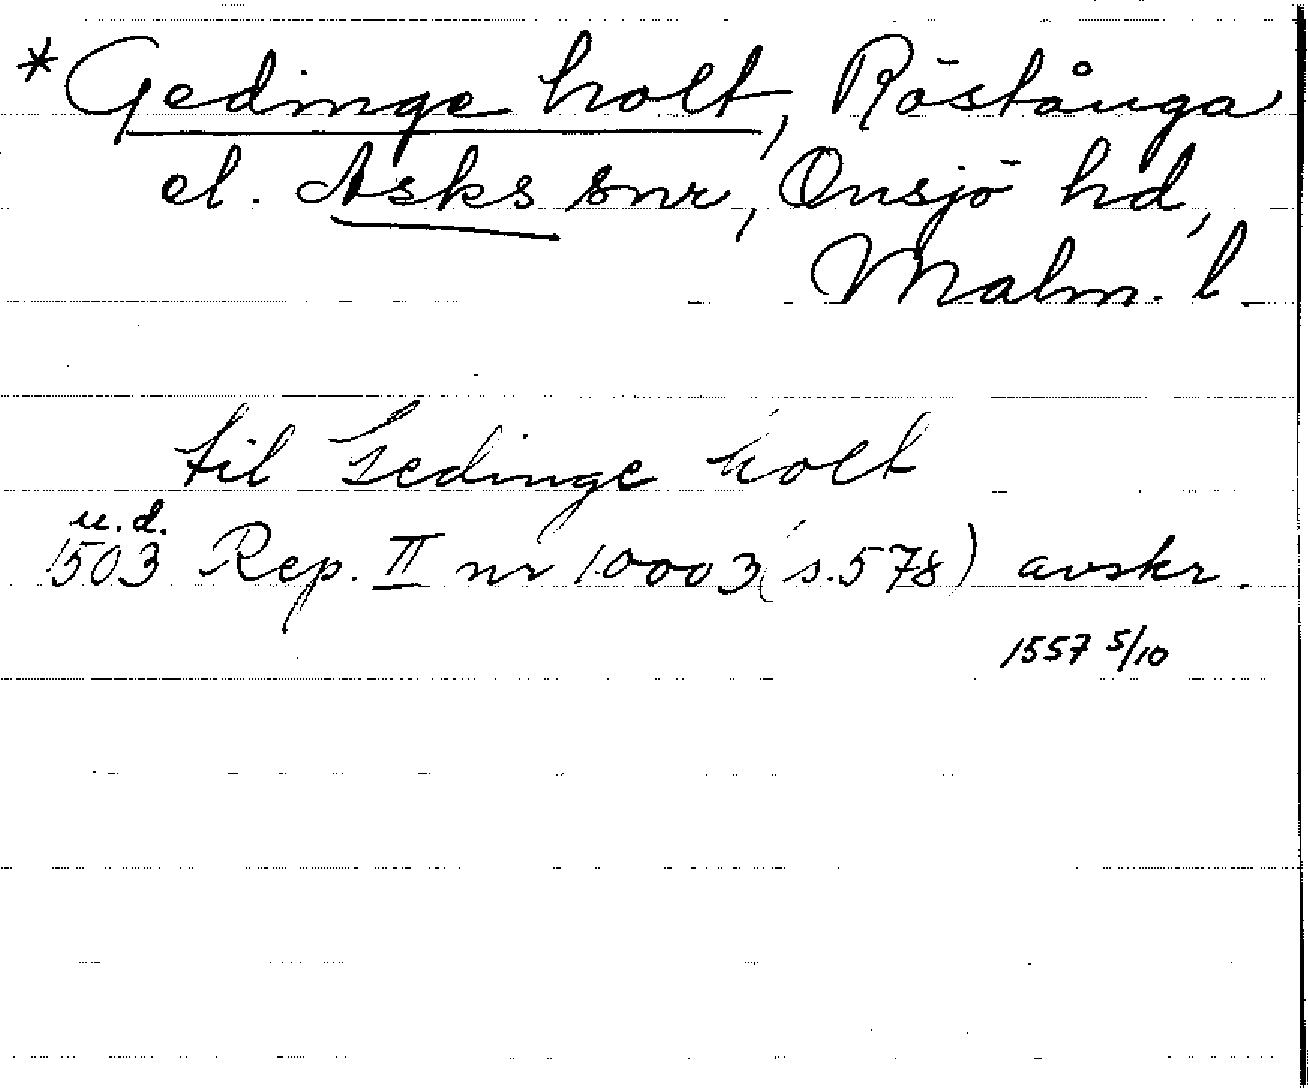 * Gedinge holt, Röstånga
el. Asks snr, Onsjö hd,
Malm. l.
til Gedinge holt
u.d.
1503 Rep. II nr 10003 (s. 578) avskr.
1557 5/10